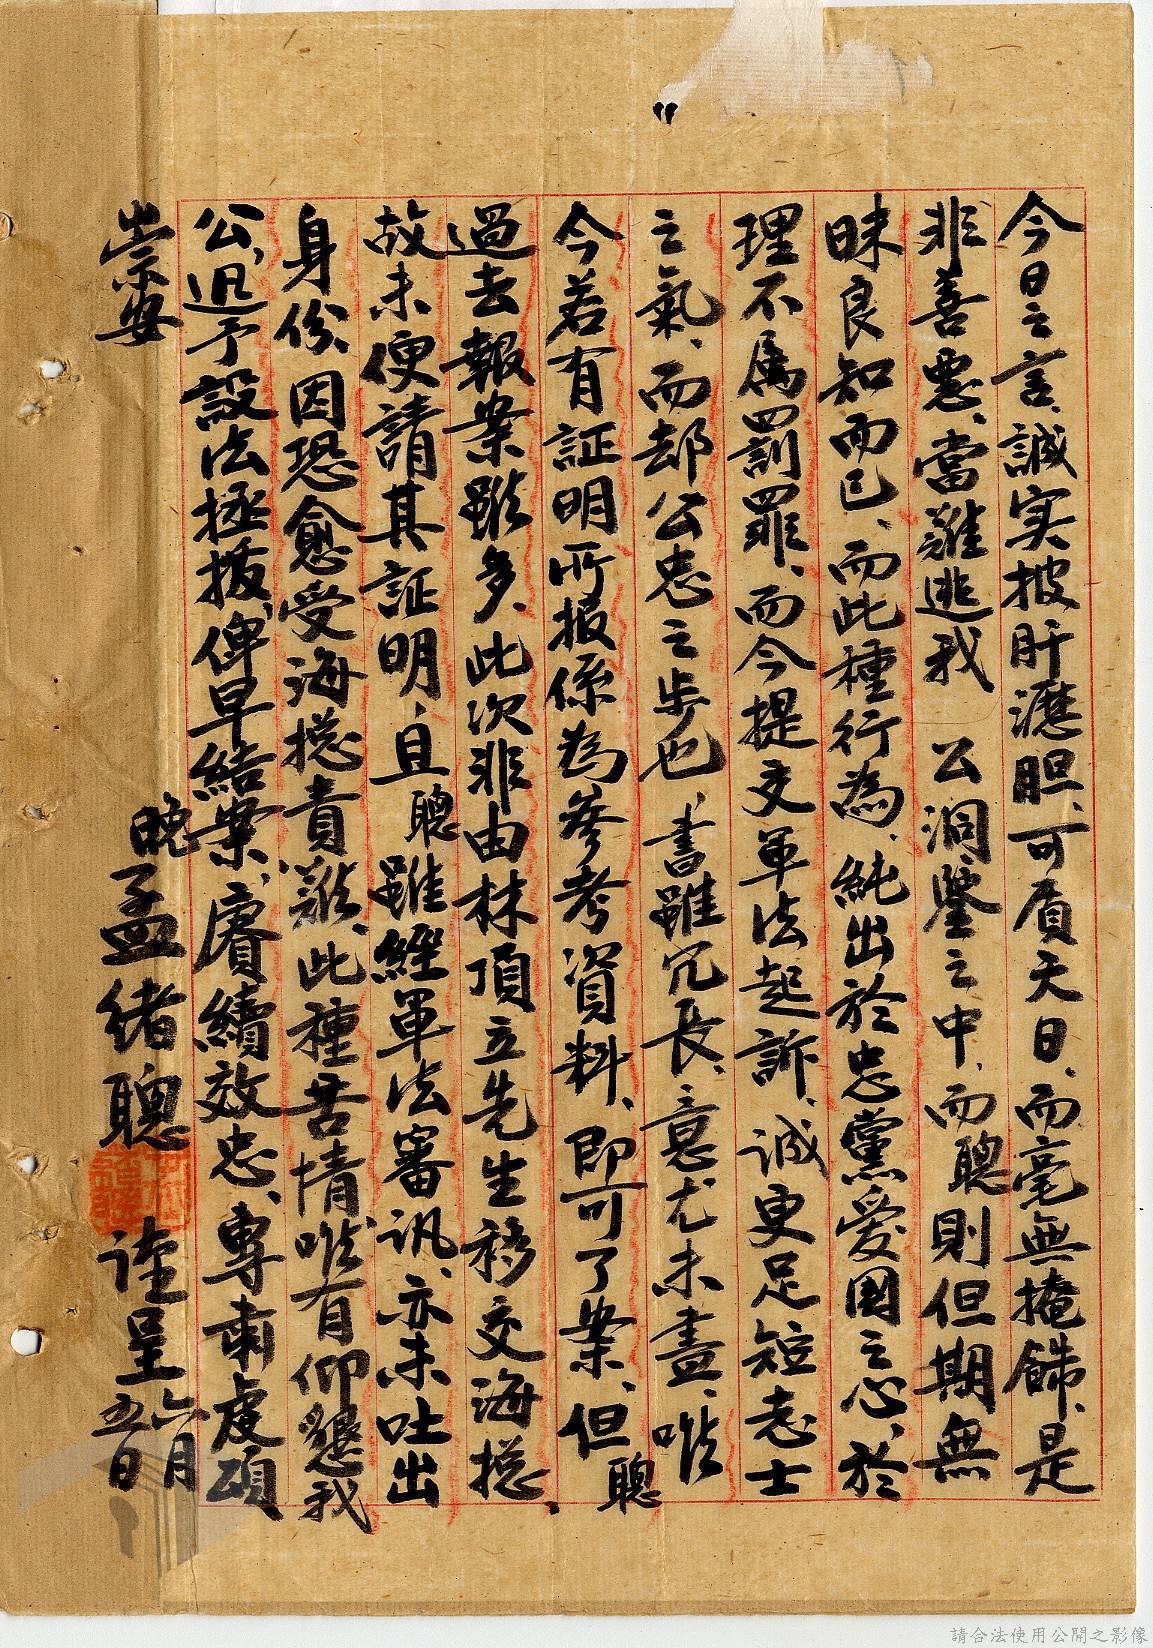 今日之言、誠实披肝瀝胆、可質天日、而毫無掩飾、是
非善惡、當難逃我　公洞鑒之中、而聰則但期無
昧良知而已、而此種行為、純出於忠黨愛國之心、於
理不属罰罪、而今提交軍法起訴、诚更足短志士
之氣、而却公忠之步也、書雖冗長、意尤未盡、唯
今若有証明所报係為參考資料、即可了案、但聰
過去報案雖多、此次非由林頂立先生移交海總、
故未便請其証明、且聰雖經軍法審訊、亦未吐出
身份、因恐愈受海總責難、此種苦情唯有仰懇我
公、迅予設法拯拔、俾早結案、賡續效忠、專肅虔頌
崇安
晚孟緒聰　谨呈六月五日
請合法使用公開之影像